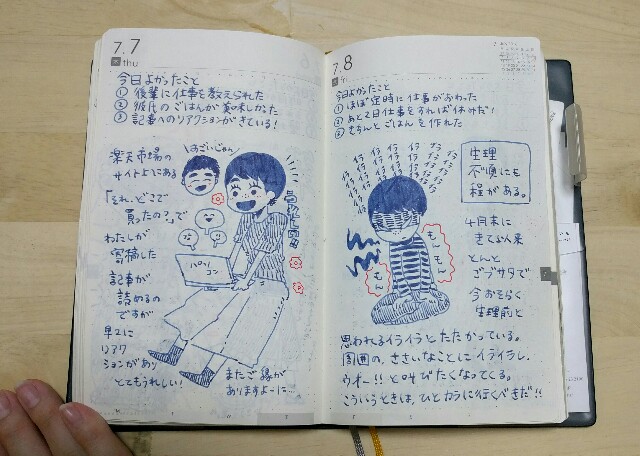 7.7
thu
今日よかったこと
① 後輩に仕事を教えられた
② 彼氏のごはんが美味しかった
③ 記事へのリアクションがきている!
すごいじゃん
楽天市場の
サイト上にある
「それ、どこで
買ったの?」で
わたしが
寄稿した
記事が
読めるの
ですが
早々に
リアク
ションがあり
とてもうれしい!
パソ
コン
またご縁が
ありますよーに…
7.8
fri
今日よかったこと
① ほぼ定時に仕事がおわった
② あと2日仕事をすれば休みだ!
③ きちんとごはんを作れた
イライライライラ
生理
不順にも
程がある。
4月末に
きてぶり以来
とんと
ごブサタで
今おそらく
生理前と
モンモン
思われるイライラとたたかっている。
周囲の、ささいなことにイライラし、
ウオー!!と叫びたくなってくる。
こういうときは、ひとカラに行くべきだ!!